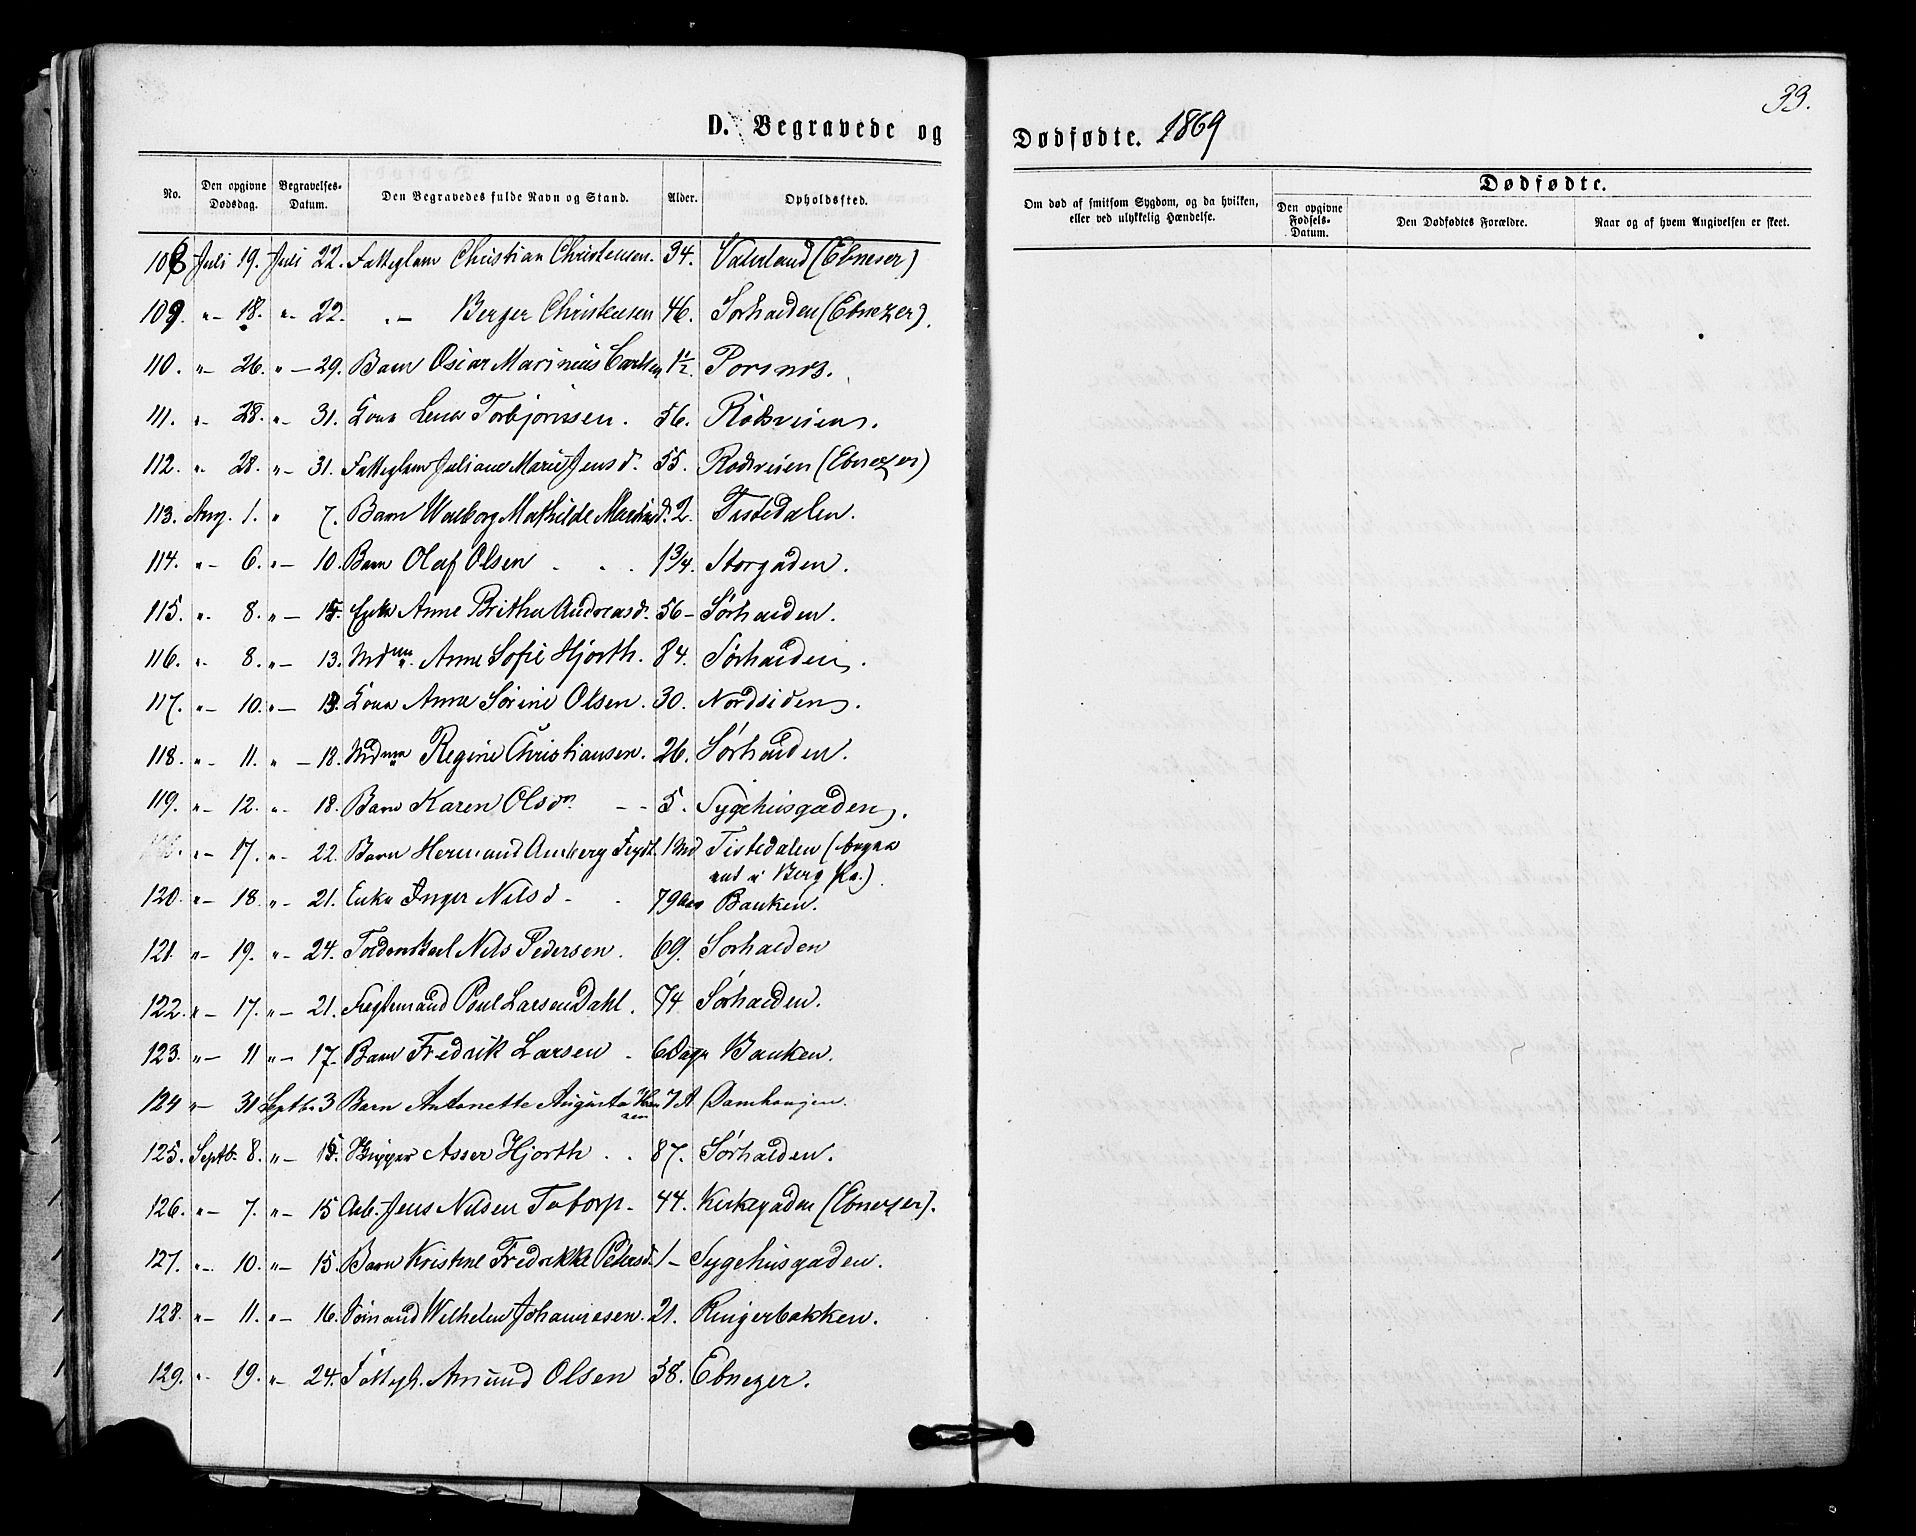 33.
D. Begravede og
Dødfødte. 1869
No.
Den opgivne Dødsdag.
Begravelses-Datum.
Den Begravedes fulde Navn og Stand.
Alder.
Opholdssted.
Om død af smitsom Sygdom, og da hvilken, eller ved ulykkelig Hændelse.
Dødfødte.
Den opgivne Fødsels-Datum.
Den Dødfødtes Forældre.
Naar og af hvem Angivelsen er skeet.
108 Juli 19. Juli 22. Fatteglem Christian Christensen. 34. Vaterland (Ebneser)
109. " - 18. " - 22. " - Berger Christensen 46. Sørhalden (Ebnezer).
110. " - 26. " - 29. Barn Oscar Marinius Carlsen 1½. Porsnes.
111. " - 28. " - 31. Kona Lena Torbjørnsen. 56. Rødsveien.
112. " 28. " - 31. Fatteglem Juliane Marie Jensd. 55. Rødsveien (Ebnezer)
113. Aug. 1. " 7. Barn Walborg Mathilde 2. Tistedalen.
114. " - 6. " - 10. Barn Olaf Olsen - . . 1 3/4. Storgaden.
115. " 8. " - 15. Enke Anne Britha Andreasd. 56 - Sørhalden.
116. " - 8. " - 13. Mdme. Anne Sofie Hjorth. 84. Sørhalden.
117. " - 10. " - 13. Kona Anne Sørine Olsen. 30. Nordsiden.
118. " - 11. " - 18. Mdme Regine Christiansen. 26. Sørhalden.
119. " - 12. " - 18. Barn Karen Olsdn - - 5. Sygehusgaden.
" - 17. " - 22. Barn Hermand Amberg Feydt. 1 Md Tistedalen (begra
vet i Berg Kn.)
120. " - 18. " - 21. Enke Inger Nilsd - . 79 Aar Banken.
121. " - 19. " - 24. Nils Pedersen. 69. Sørhalden
122. " - 17. " - 21. Fragtemand Poul Larsen Dahl. 74 Sørhalden.
123. " - 11 " - 17. Barn Fredrik Larsen . 6 Dage Banken.
124 " - 31 Septbr 3 Barn Antonette Augusta Han
sen 7 A Damhaugen.
125. Septb. 8. " - 15. Asser Hjorth . . 87. Sørhalden.
126. " - 7. " - 15 Arb. Jens Nilsen Taborp - 44. Kirkegaden (Ebnezer).
127. " - 10. " - 15. Barn Kristine Fredrikke Petersd. 1 - Sygehusgaden.
128. " - 11. " - 16. Sømand Wilhelm Johannesen. 21. Ringerbakken.
129. " - 19. " - 24. Fattegl. Amund Olsen 38. Ebnezer.